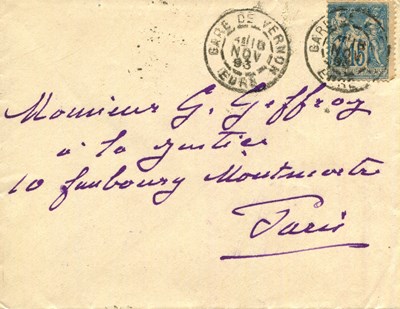 GARE DE VERNON
NOV
93
EURE
15
Monsieur G. Geffroy
à la Justice
10 faubourg Montmartre
Paris